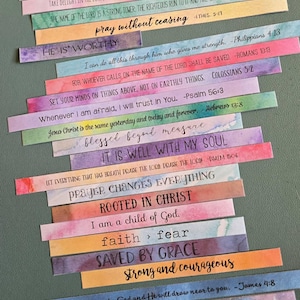 THE NAME OF THE LORD IS A STRONG TOWER; THE RIGHTEOUS RUN INTO IT AND
pray without ceasing 1 THES. 5:17
HE IS WORTHY
I can do all this through him who gives me strength. Philippians 4:13
FOR WHOEVER CALLS ON THE NAME OF THE LORD SHALL BE SAVED ROMANS 10:13
SET YOUR MINDS ON THINGS ABOVE, NOT ON EARTHLY THINGS. COLOSSIANS 3:2
Whenever I am afraid, I will trust in You. -Psalm 56:3
Jesus Christ is the same yesterday and today and forever. -Hebrews 13:8
blessed beyond measure
IT IS WELL WITH MY SOUL
LET EVERYTHING THAT HAS BREATH PRAISE THE LORD. PRAISE THE LORD. PSALM 150:6
PRAYER CHANGES EVERYTHING
ROOTED IN CHRIST
I am a child of God.
faith > fear
SAVED BY GRACE
strong and courageous
God and He will draw near to you. -James 4:8